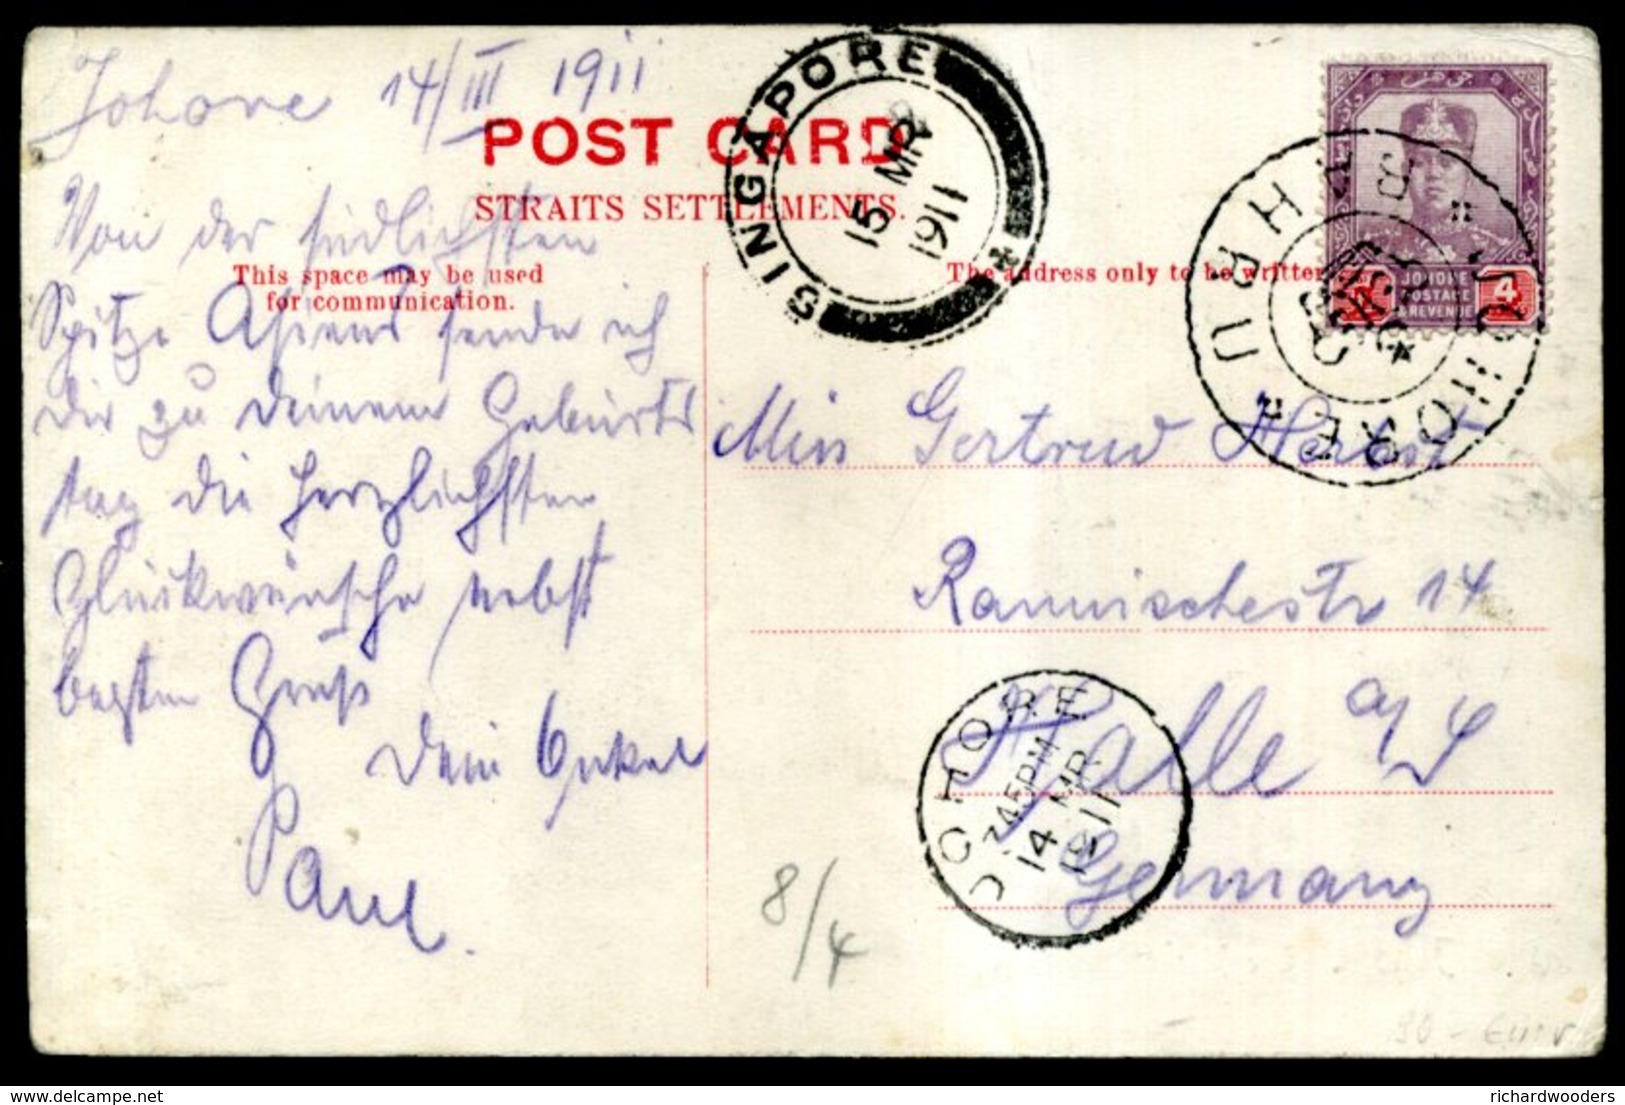 Johore 14/III 1911
POST CARD
STRAITS SETTLEMENTS.
This space may be used
for communication.
The address only to be written
Von der südlichsten
Spitze Asiens sende ich
dir zu deinem Geburts
tag die herzlichsten
Glückwünsche nebst
besten Gruß
Dein Onkel
Paul.
Miss Gertrud Herbst
Rannischestr 14
Halle a/S
Germany
8/4
SINGAPORE
15 MR
1911
JOHORE BAHRU
JOHORE
POSTAGE
& REVENUE
4
JOHORE
3.45PM
14 MR
1911
richardwooders